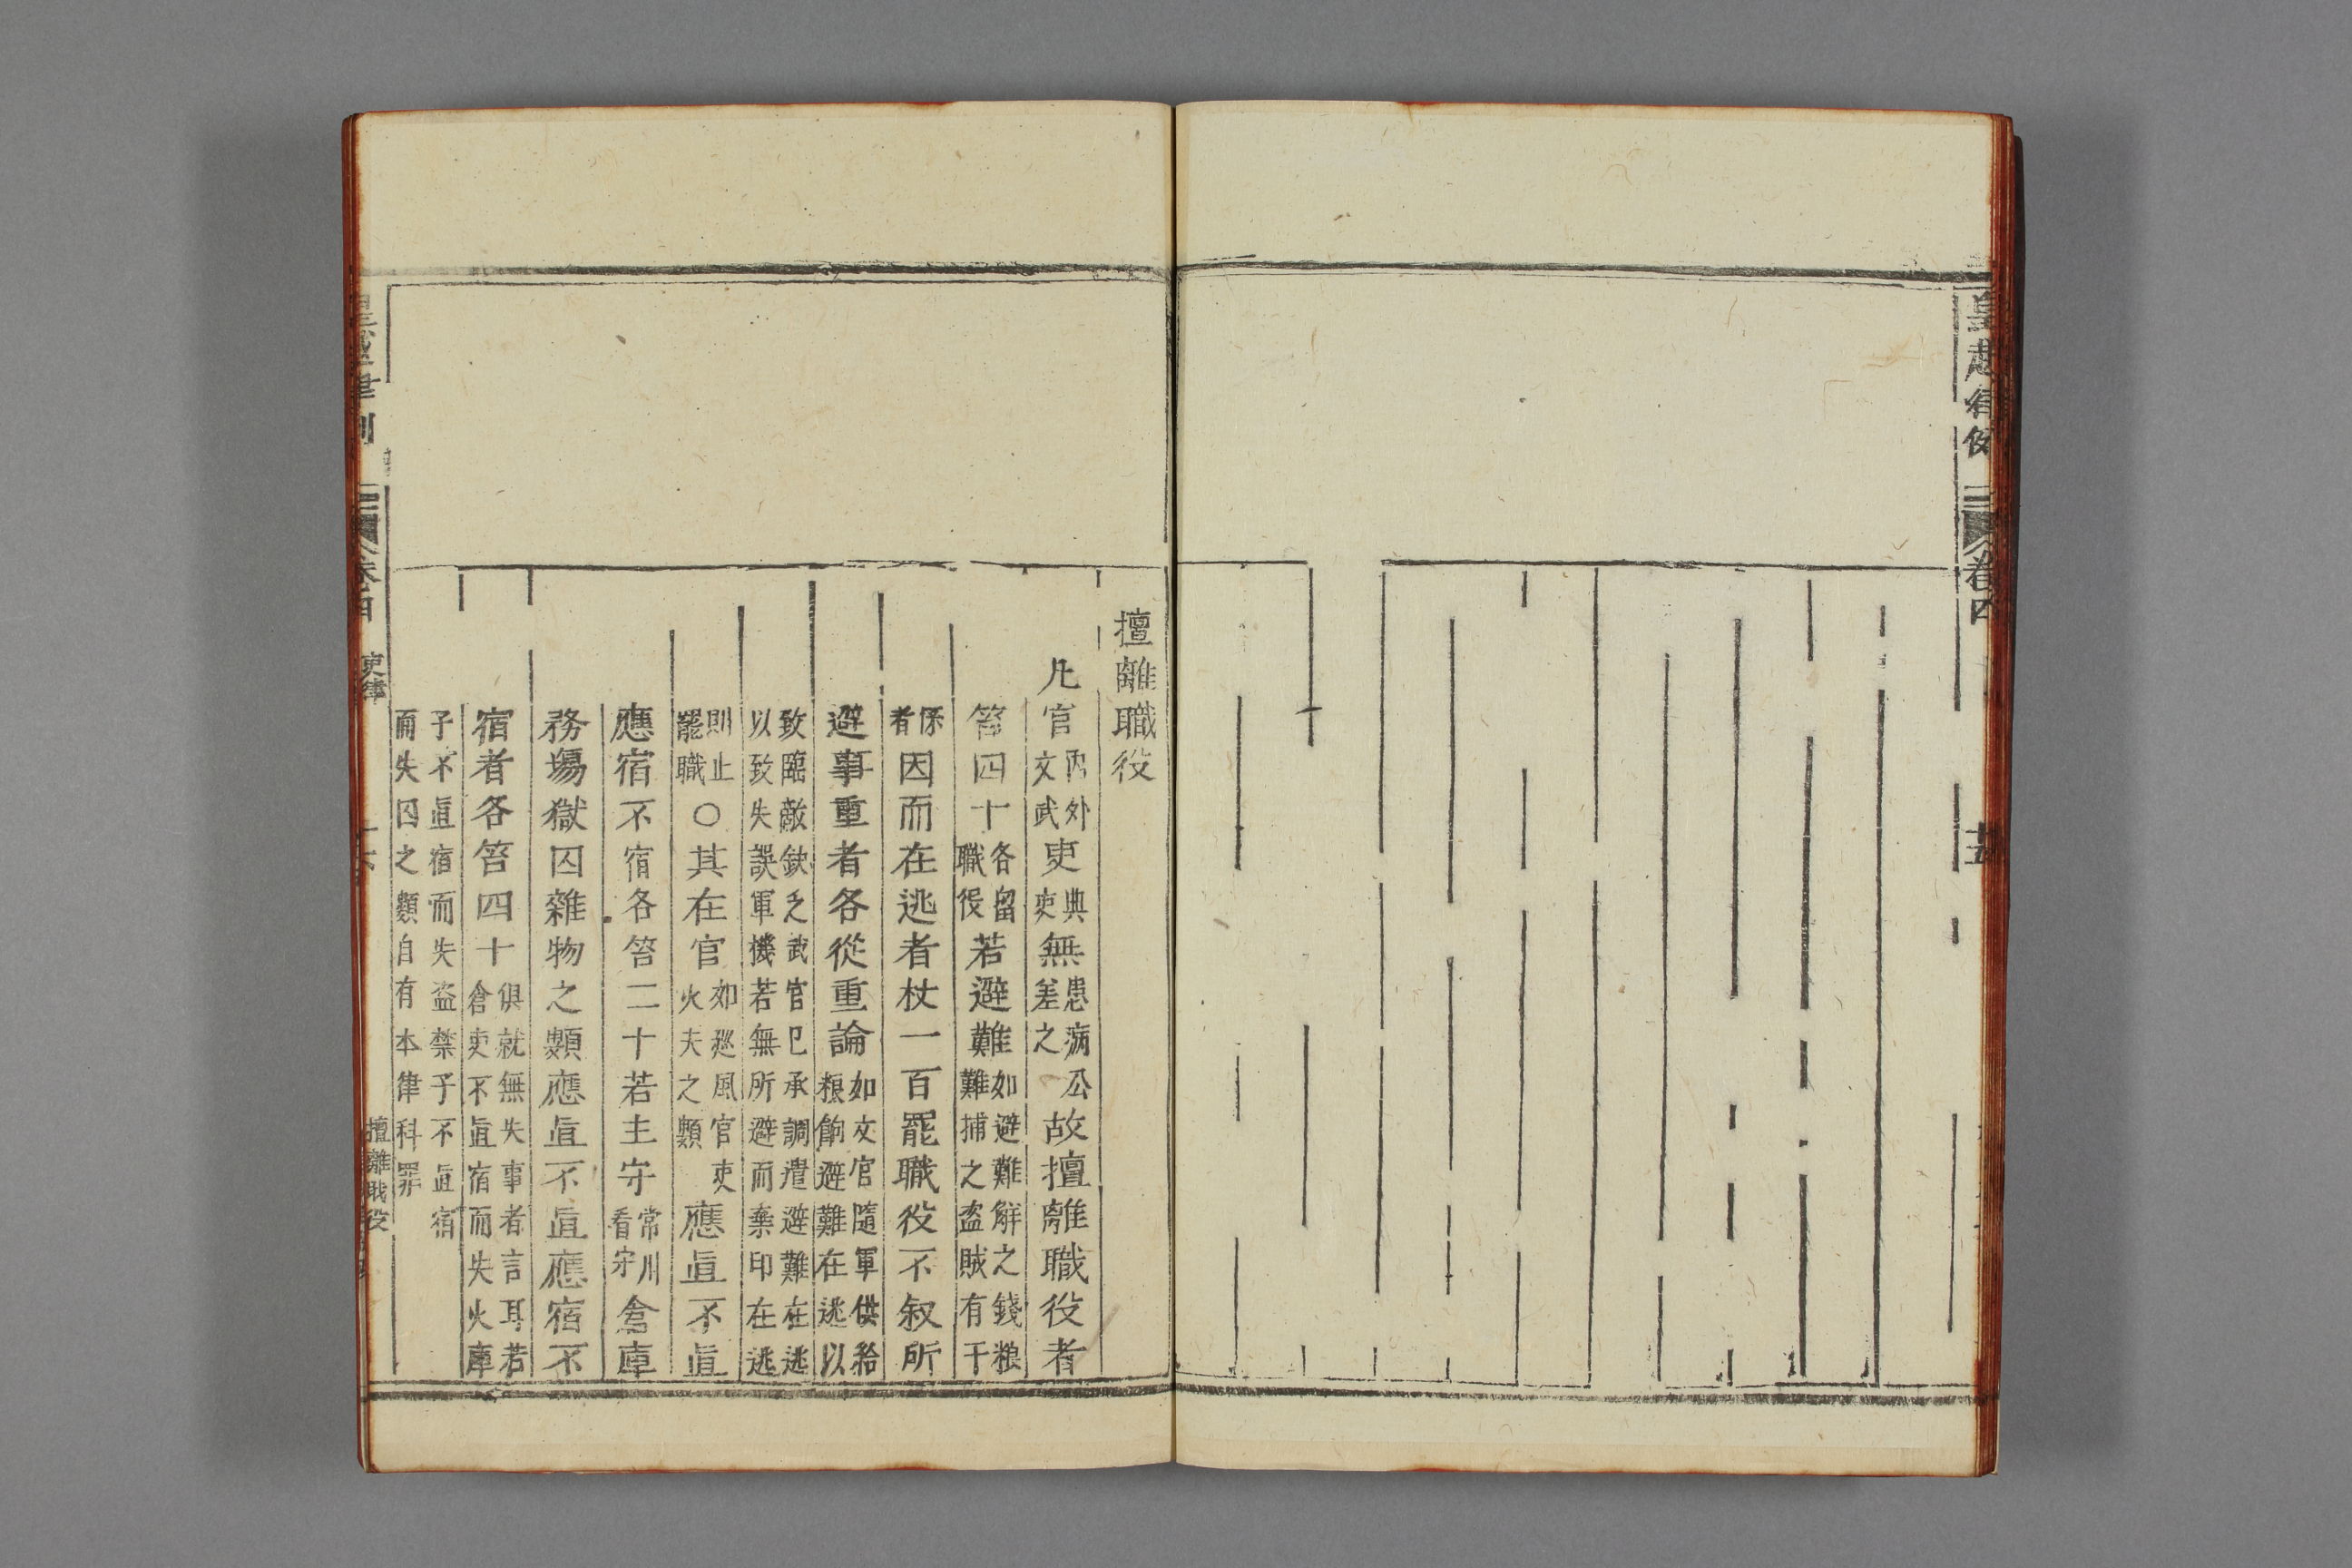 皇越律例
卷四
十五
擅離職役
凡官內外文武吏典吏無患病公差之故擅離職役者
笞四十各留職役若避難如避難解之錢粮難捕之盗賊有干
係者因而在逃者杖一百罷職役不叙所
避事重者各從重論如文官隨軍供給粮餉避難在逃以
致臨敵缺乏武官已承調遣避難在逃以致失誤軍機若無所避而棄印在逃
則止罷職○其在官如廵風官吏火夫之類應直不直
應宿不宿各笞二十若主守常川看守倉庫
務塲獄囚雜物之類應直不直應宿不
宿者各笞四十俱就無失事者言耳若倉吏不直宿而失火庫
子不直宿而失盗禁子不直宿而失囚之類自有本律科罪
皇越律例
卷四
吏律
擅離職役